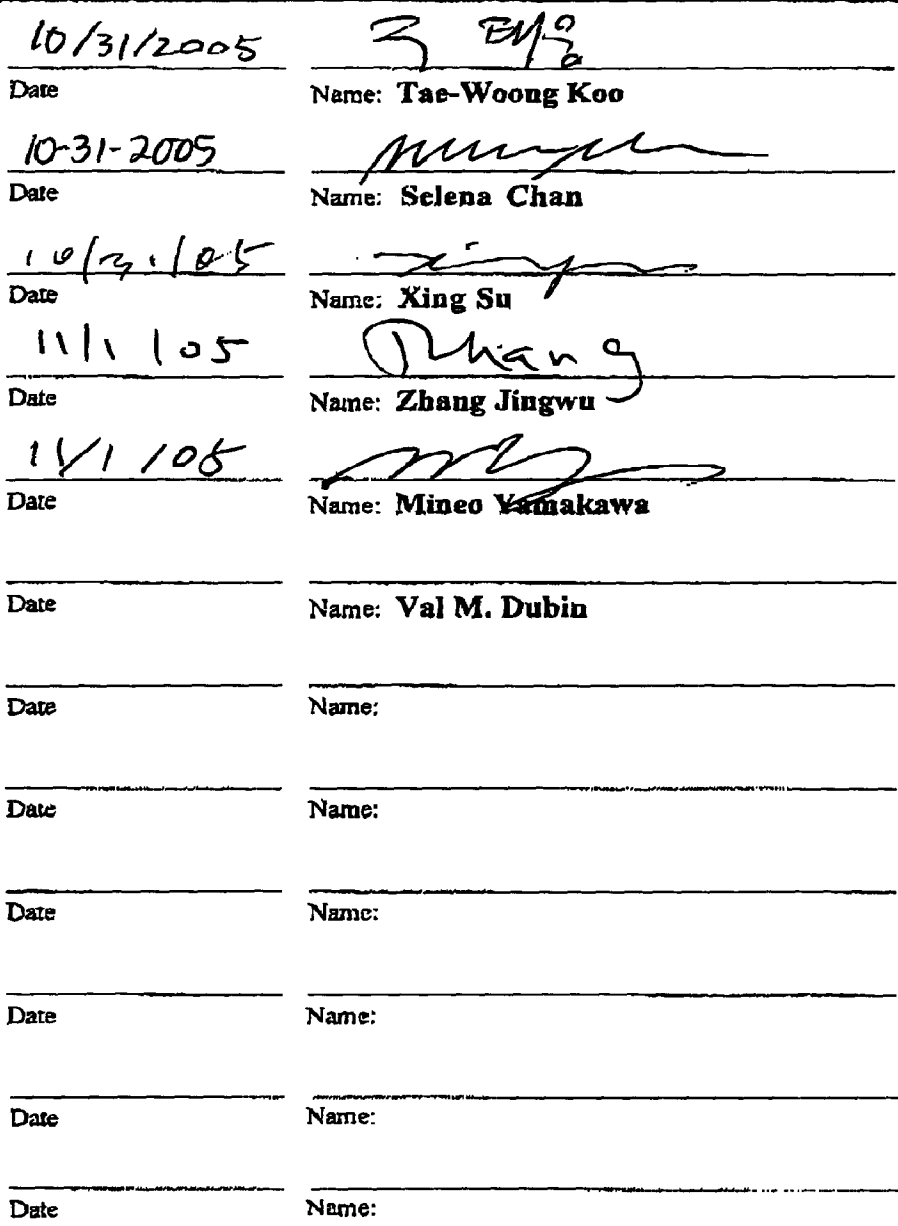 10/31/2005 구 태웅
Date Name: Tae-Woong Koo
10-31-2005
Date Name: Selena Chan
10/31/05
Date Name: Xing Su
11/1/05 Zhang
Date Name: Zhang Jingwu
11/1/05
Date Name: Mineo Yamakawa
Date Name: Val M. Dubin
Date Name:
Date Name:
Date Name:
Date Name:
Date Name:
Date Name: